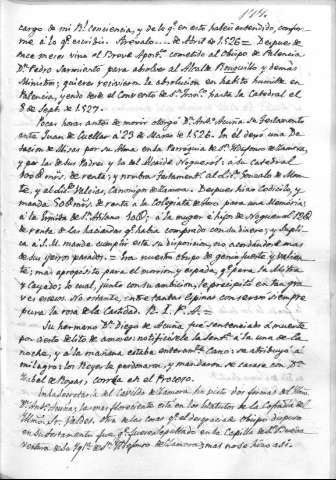 174.
cargo de mi Rl. conciencia, y de lo qe. en esto habeis entendido, confor-
me á lo qe. escribis. Arevalo... de Abril de 1526 = Despues de
once meses vino el Breve Apostco. cometido al Obispo de Palencia
Dn. Pedro Sarmiento para absolver al Alcalde Ronquillo y demas
Ministros; quienes recivieron la absolucion en habito humilde en
Palencia, yendo desde el Convento de Sn. Franco. hasta la Catedral el
8 de Septe. de 1527.
Pocas horas antes de morir otorgó Dn. Anto. Acuña su Testamento
ante Juan de Cuellar á 23 de Marzo de 1526. En él dejó una Do-
tacion de Misas por su Alma en la Parroquia de Sn. Ildefonso de Zamora,
y por las de sus Padres y la del Alcaide Noguerol: á su Catedral
mrs. de renta; y nombra Testament. al Ldo. Gonzalo de
y al Canonigo de Zamora. Despues hizo Codicilo, y
manda mrs. de renta á la Colegiata de Toro, para una Memoria:
á la Ermita de Sn. á la muger é hijos de Noguerol
de renta de las haciendas qe. habia comprado con su dinero; y supli-
ca á S. M. mande cumplir esta su disposicion, no acordandose mas
de sus yerros pasados = Era nuestro obispo de genio fuerte y valien-
te; mas aproposito para el morrion y espada, qe. para la Mitra
y Cayado; lo cual, junto con su ambicion, le precipitó en tan gra-
ves excesos. No obstante, entre tantas espinas conservó siempre
pura la rosa de la Castidad. R. I. P. A. =
Su hermano Dn. Diego de Acuña fue sentenciado á muerte
por cierto delito de amores: notificósele la Sentª. á la una de la
noche, y á la mañana estaba enteramte. cano: se atribuyó á
milagro: los Reyes le perdonaron, y mandaron se casara con Dª.
Isabel de Rojas, correa en el Proceso.
En la Secretaria del Cavildo de Zamora hé visto dos firmas del Illmo.
Dn. Anto. Acuña, la mas floreciente está en los Estatutos de la Cofradia del
Sr. Valdes. Otra de las cosas qe. el desgraciado Obispo dispuso
en su testamento fue qe. fuese sepultado en la Capilla de
de la Yglª. de Sn. Ildefonso de Zamora; mas no se hizo asi.